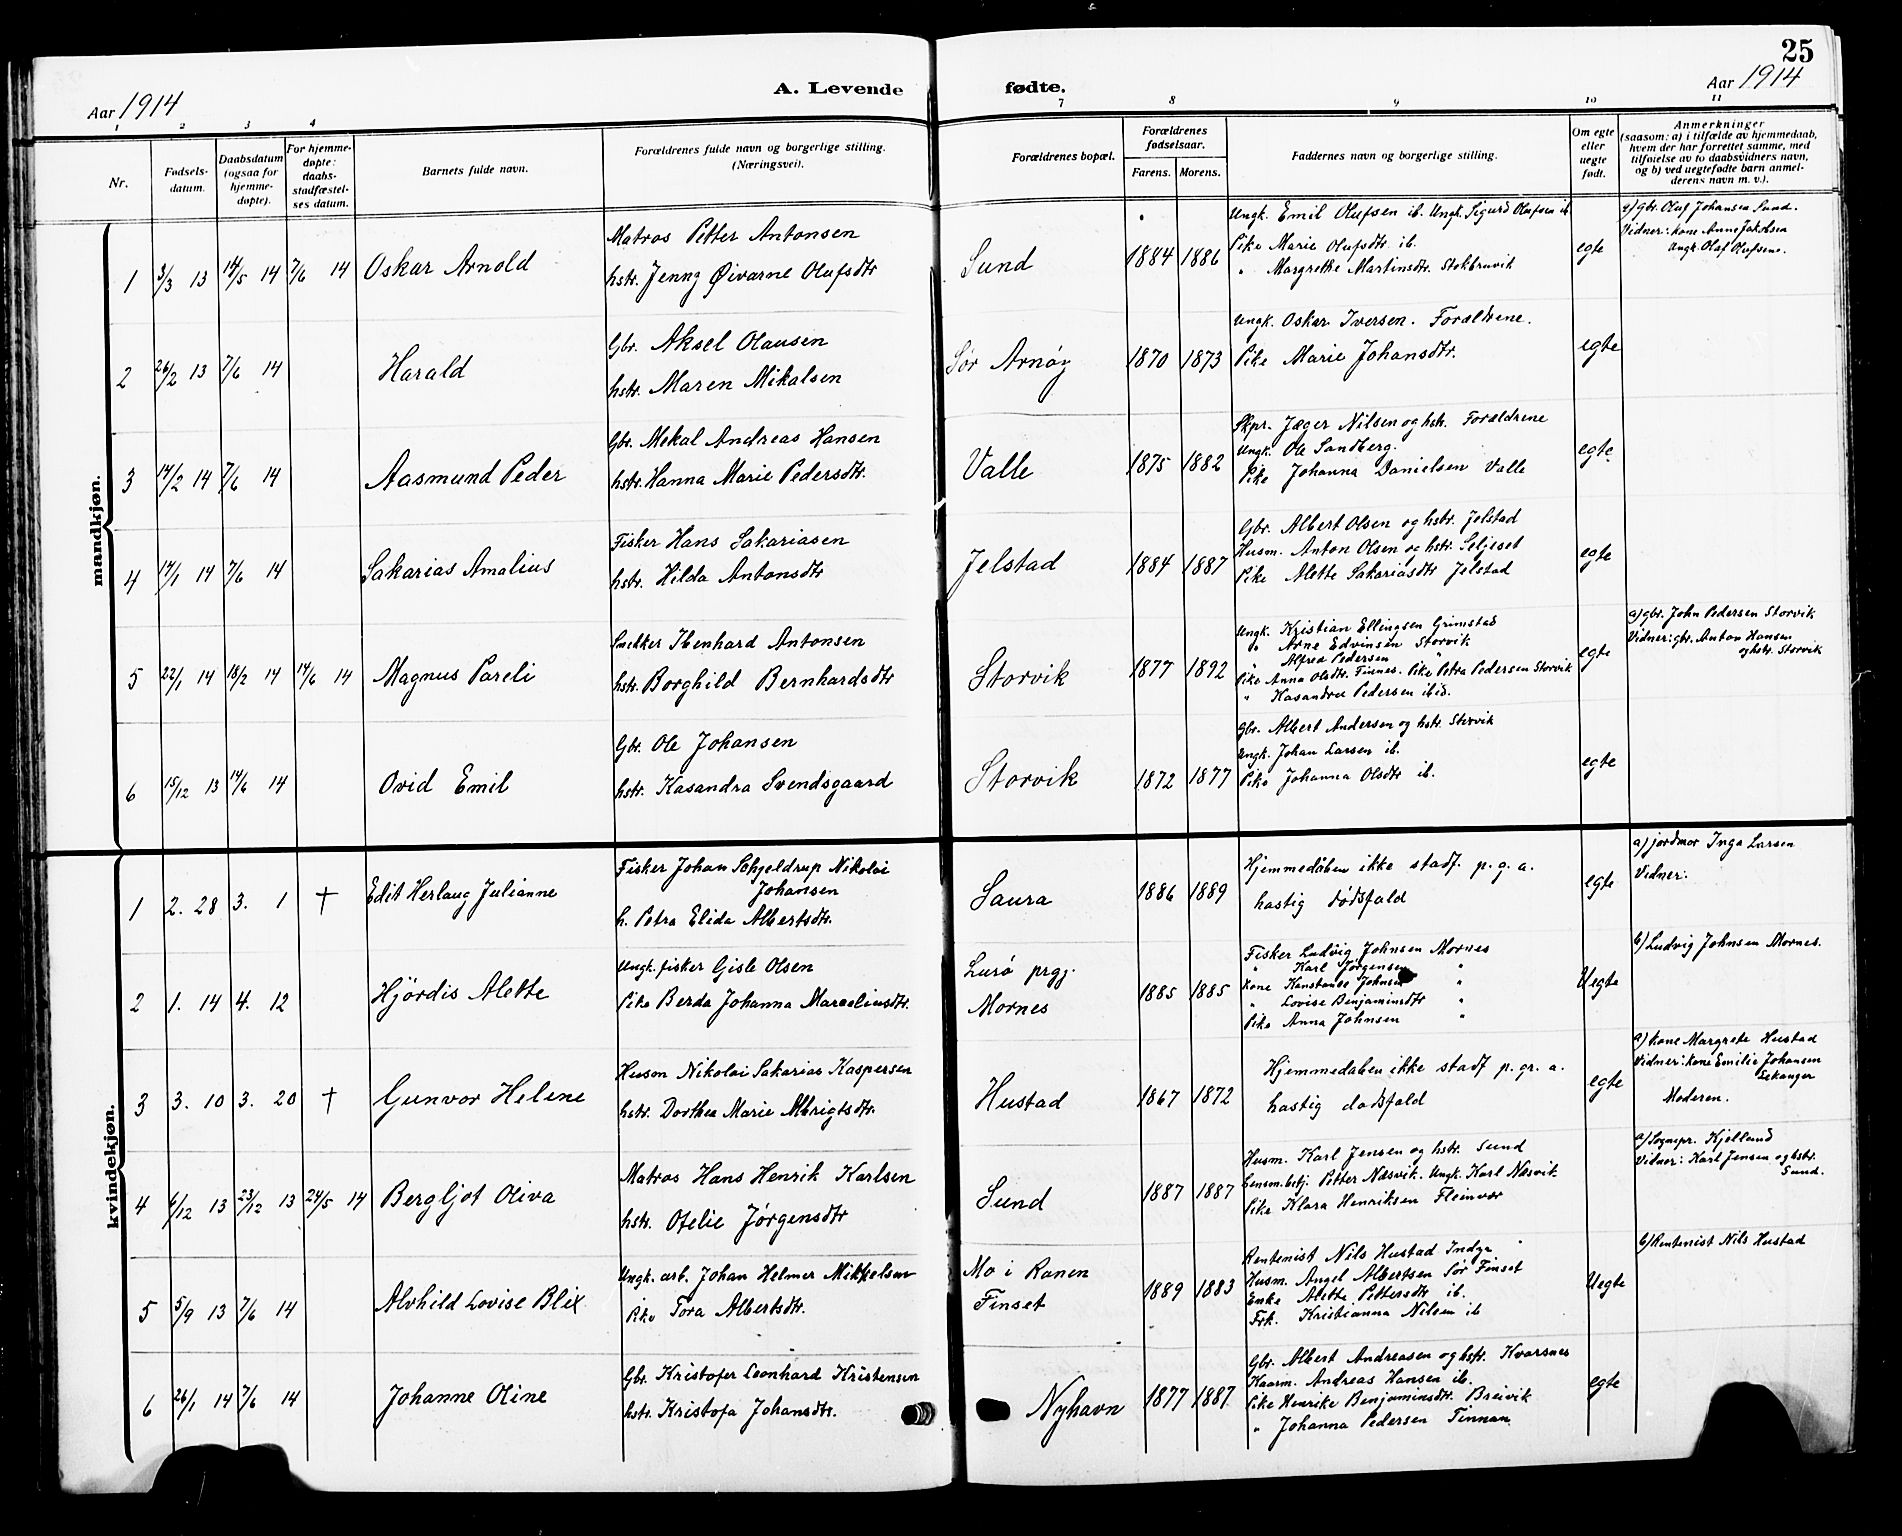 25
Aar 1914
A. Levende fødte.
Aar 1914
1 2 3 4 7 8 9 10 11
Nr.
Fødsels-
datum.
Daabsdatum
(ogsaa for
hjemme-
døpte).
For hjemme-
døpte:
daabs-
stadfæstel-
ses datum.
Barnets fulde navn.
Forældrenes fulde navn og borgerlige stilling.
(Næringsvei).
Forældrenes bopæl.
Forældrenes
fødselsaar.
Farens. Morens.
Faddernes navn og borgerlige stilling.
Om egte
eller
uegte
født.
Anmerkninger
(saasom: a) i tilfælde av hjemmedaab,
hvem der har forrettet samme, med
tilføielse av to daabsvidners navn,
og b) ved uegtefødte barn anmel-
derens navn m. v.).
mandkjøn.
1 3/3 13 14/5 14 7/6 14 Oskar Arnold
Matros Petter Antonsen
hstr. Jenny Øivarne Olufsdtr
Sund 1884 1886
Ungk. Emil Olufsen ib. Ungk. Sigurd Olufsen ib.
Pike Marie Olufsdtr. ib.
" Margrethe Martinsdtr. Stokbruvik
egte
a) Gbr. Oluf Johansen Sund.
Vidner: kone Anne Jakobsen
Ungk. Olaf Olufsene.
2 26/2 13 7/6 14 Harald
Gbr. Aksel Olausen
hstr. Maren Mikalsen
Sør Arnøy 1870 1873
Ungk. Oskar Iversen. Forældrene.
Pike Marie Johansdtr.
egte
3 14/2 14 7/6 14 Aasmund Peder
Gbr. Mekal Andreas Hansen
hstr. Hanna Marie Pedersdtr.
Valle 1875 1882
Skpr. Jæger Nilsen og hstr. Forældrene
Ungk. Ole Sandberg.
Pike Johanna Danielsen Valle
egte
4 14/1 14 7/6 14 Sakarias Amalius
Fisker Hans Sakariasen
hstr. Hilda Antonsdtr
Jelstad 1884 1887
Gbr. Albert Olsen og hstr. Jelstad
Husm. Anton Olsen og hstr. Seljeset
Pike Alette Sakariasdtr Jelstad
egte
5 22/1 14 18/2 14 14/6 14 Magnus Pareli
Snedker Ibenhard Antonsen
hstr. Borghild Bernhardsdtr
Storvik 1877 1892
Ungk. Kristian Ellingsen Grimstad
" Arne Edvinsen Storvik
" Alfred Pedersen "
Pike Anna Olsdtr. Finnes. Pike Petra Pedersen Storvik
" Kasandra Pedersen ibid.
egte
a) gbr. John Pedersen Storvik
Vidner: gbr. Anton Hansen
og hstr. Storvik
6 15/12 13 14/6 14 Ovid Emil
Gbr. Ole Johansen
hstr. Kasandra Svendsgaard
Storvik 1872 1877
Gbr. Albert Andersen og hstr Storvik
Ungk. Johan Larsen ib.
Pike Johanna Olsdtr ib.
egte
kvindekjøn.
1 2. 28 3. 1 † Edit Herlaug Julianne
Fisker Johan Schjeldrup Nikolai
Johansen
h. Petra Elida Albertsdtr.
Saura 1886 1889
Hjemmedåben ikke stadf. p. g. a.
hastig dødsfald
egte
a) jordmor Inga Larsen
Vidner:
2 1. 14 4. 12 Hjördis Alette
Ungk. fisker Gisle Olsen
Pike Berda Johanna Marceliusdtr.
Lurø prgj.
Mornes
1885 1885
Fisker Ludvig Johnsen Mornes
" Karl Jørgensen "
Kone Konstanse Johnsen "
" Lovise Benjaminsdtr "
Pike Anna Johnsen "
Uegte
b) Ludvig Johnsen Mornes.
3 3. 10 3. 20 † Gunvor Helene
Husm Nikolai Sakarias Kaspersen
hstr. Dorthea Marie Albrigtsdtr.
Hustad 1867 1872
Hjemmedaben ikke stadf p. gr. a.
hastig dødsfald
egte
a) kone Margrete Hustad
Vidner: kone Emilie Johansen
Moderen.
4 6/12 13 23/12 13 24/5 14 Bergljot Oliva
Matros Hans Henrik Karlsen
hstr. Ofelie Jørgensdtr
Sund 1887 1887
Husm. Karl Jensen og hstr Sund
Lensm.betj. Petter Næsvik. Ungk. Karl Næsvik
Pike Klara Henriksen Fleinvær
a) Sognepr. Kjelland
Vidner: Karl Jensen og hstr.
Sund.
5 5/9 13 7/6 14 Alvhild Lovise Blix
Ungk. arb. Johan Helmer Mikkelsen
Pike Tora Albertsdtr.
Mo i Ranen
Finset
1889 1883
Rentenist Nils Hustad Indyr
Husm. Angel Albertsen Sør Finset
Enke Alette Pettersdtr ib.
Frk. Kristianna Nilsen ib
Uegte
b) Rentenist Nils Hustad
6 26/1 14 7/6 14 Johanne Oline
Gbr. Kristofer Leonhard Kristensen
hstr. Kristofa Johansdtr.
Nyhavn 1877 1887
Gbr. Albert Andreasen og hstr. Kvarsnes
Kaarm. Andreas Hansen ib.
Pike Henrike Benjaminsdtr. Breivik
" Johanna Pedersen Finnan
egte